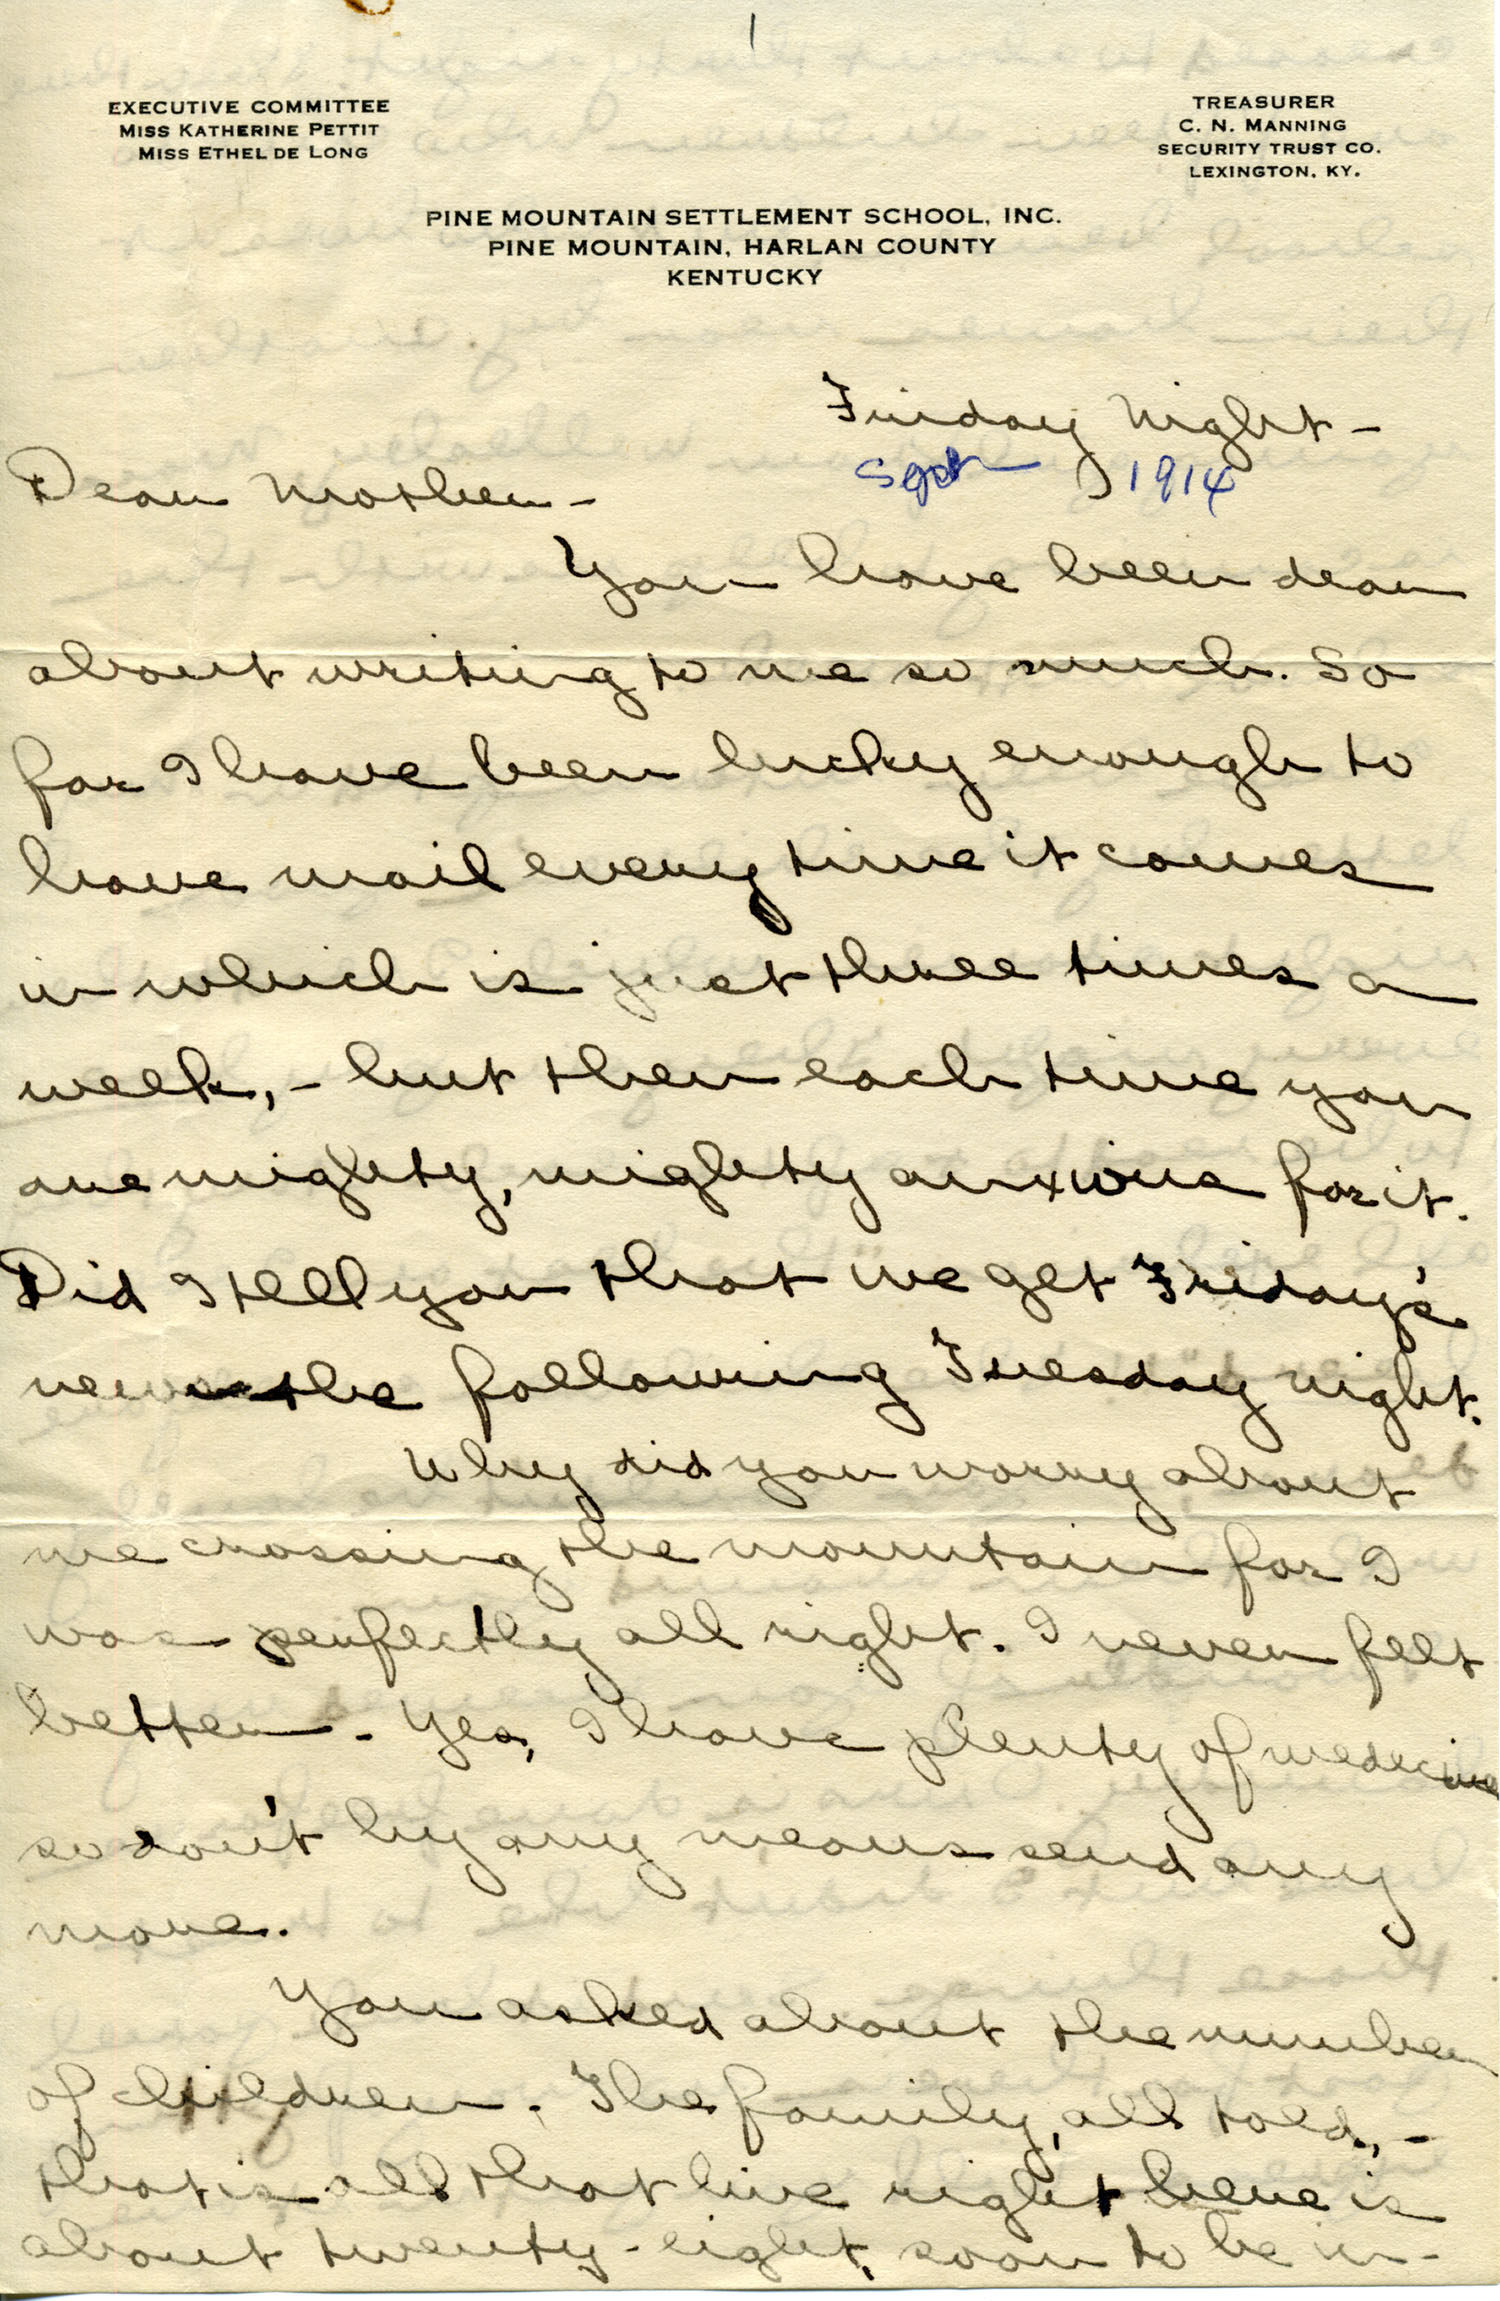 1
EXECUTIVE COMMITTEE
MISS KATHERINE PETTIT
MISS ETHEL DE LONG
TREASURER
C. N. MANNING
SECURITY TRUST CO.
LEXINGTON, KY.
PINE MOUNTAIN SETTLEMENT SCHOOL, INC.
PINE MOUNTAIN, HARLAN COUNTY
KENTUCKY
Friday Night -
Sept 1914
Dear Mother -
You have been dear
about writing to me so much. So
far I have been lucky enough to
have mail every time it comes
in which is just three times a
week, - but then each time you
are mighty, mighty anxious for it.
Did I tell you that we get Friday's
news the following Tuesday night.
Why did you worry about
me crossing the mountain for I
was perfectly all right. I never felt
better - Yes, I have plenty of medecine
so don't by any means send any
more.
You asked about the number
of children. The family, all told, -
that is all that live right here is
about twenty-eight, soon to be in-